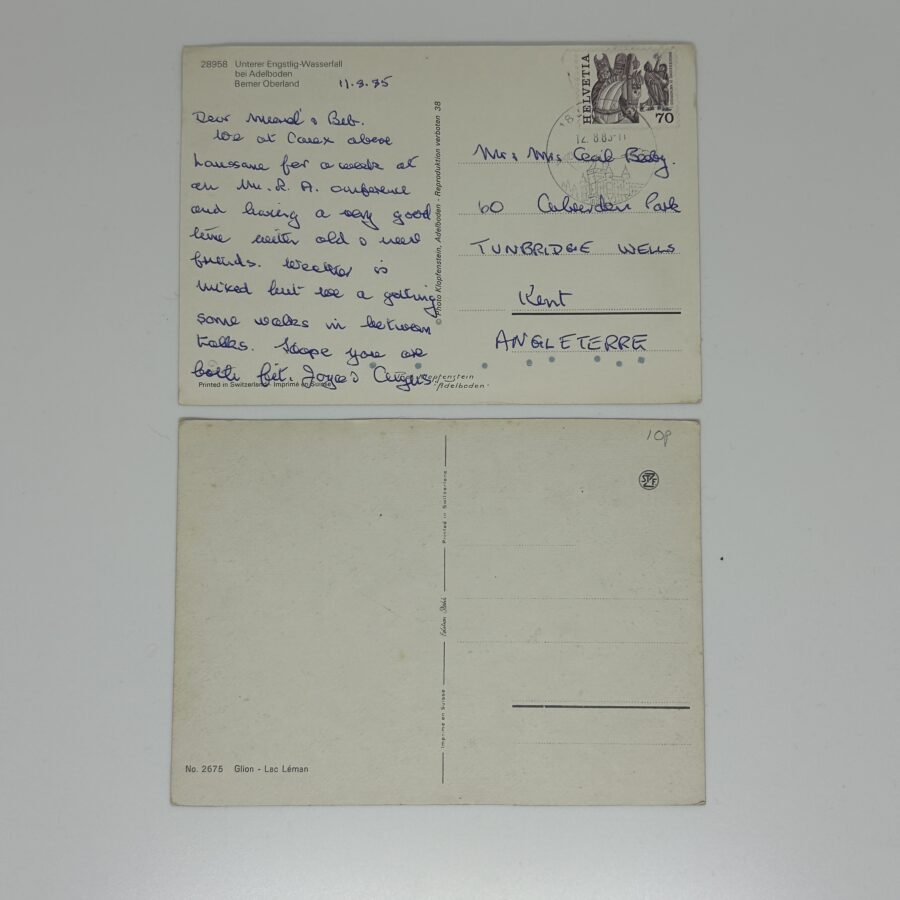 28958 Unterer Engstlig-Wasserfall
bei Adelboden
Berner Oberland
11.8.85
Dear
We at Caux above
Lausanne for a week at
an M.R.A. conference
and having a very good
time with old & new
friends. Weather is
mixed but we a getting
some walks in between
talks. Hope you are
both fit. Joyce &
Printed in Switzerland - Imprimé en Suisse
© Photo Klopfenstein, Adelboden - Reproduktion verboten 38
Klopfenstein
"Adelboden"
HELVETIA
70
12.8.85-11
Mr & Mrs Cecil
60 Calverden Park
TUNBRIDGE WELLS
Kent
ANGLETERRE
10p
Printed in Switzerland
Edition
Imprimé en Suisse
No. 2675 Glion - Lac Léman